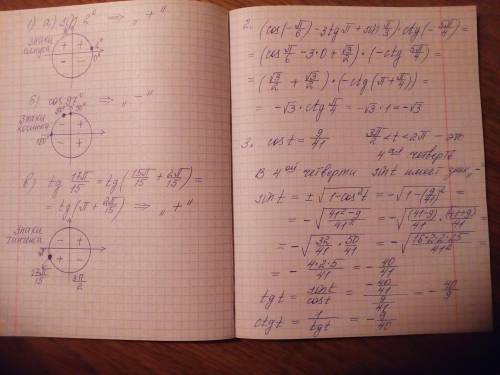 1) а) sin 2° ⇒ „+"
Знаки синуса
+ +
- -
2°
0°
б) cos 97° ⇒ „-"
97° 90°
Знаки косинуса
- +
- +
180°
в) tg 17π/15 = tg(15π/15 + 2π/15) =
= tg(π + 2π/15) ⇒ „+"
Знаки тангенса
- +
+ -
π
17π/15
3π/2
2. (cos(-π/6) - 3tgπ + sin π/3)·ctg(-5π/4) =
= (cos π/6 - 3·0 + √3/2)·(-ctg 5π/4) =
= (√3/2 + √3/2)·(-ctg(π + π/4)) =
= -√3·ctg π/4 = -√3·1 = -√3
3. cos t = 9/41 3π/2 < t < 2π - это
4ая четверть
В 4ой четверти sin t имеет знак „-"
sin t = ±√(1-cos²t) = -√(1-(9/41)²) =
= -√((41²-9²)/41²) = -√((41-9)/41 · (41+9)/41) =
= -√(32/41 · 50/41) = -√(16·2·2·25/41²) =
= -4·2·5/41 = -40/41
tg t = sin t/cos t = (-40/41)/(9/41) = -40/9
ctg t = 1/tg t = -9/40